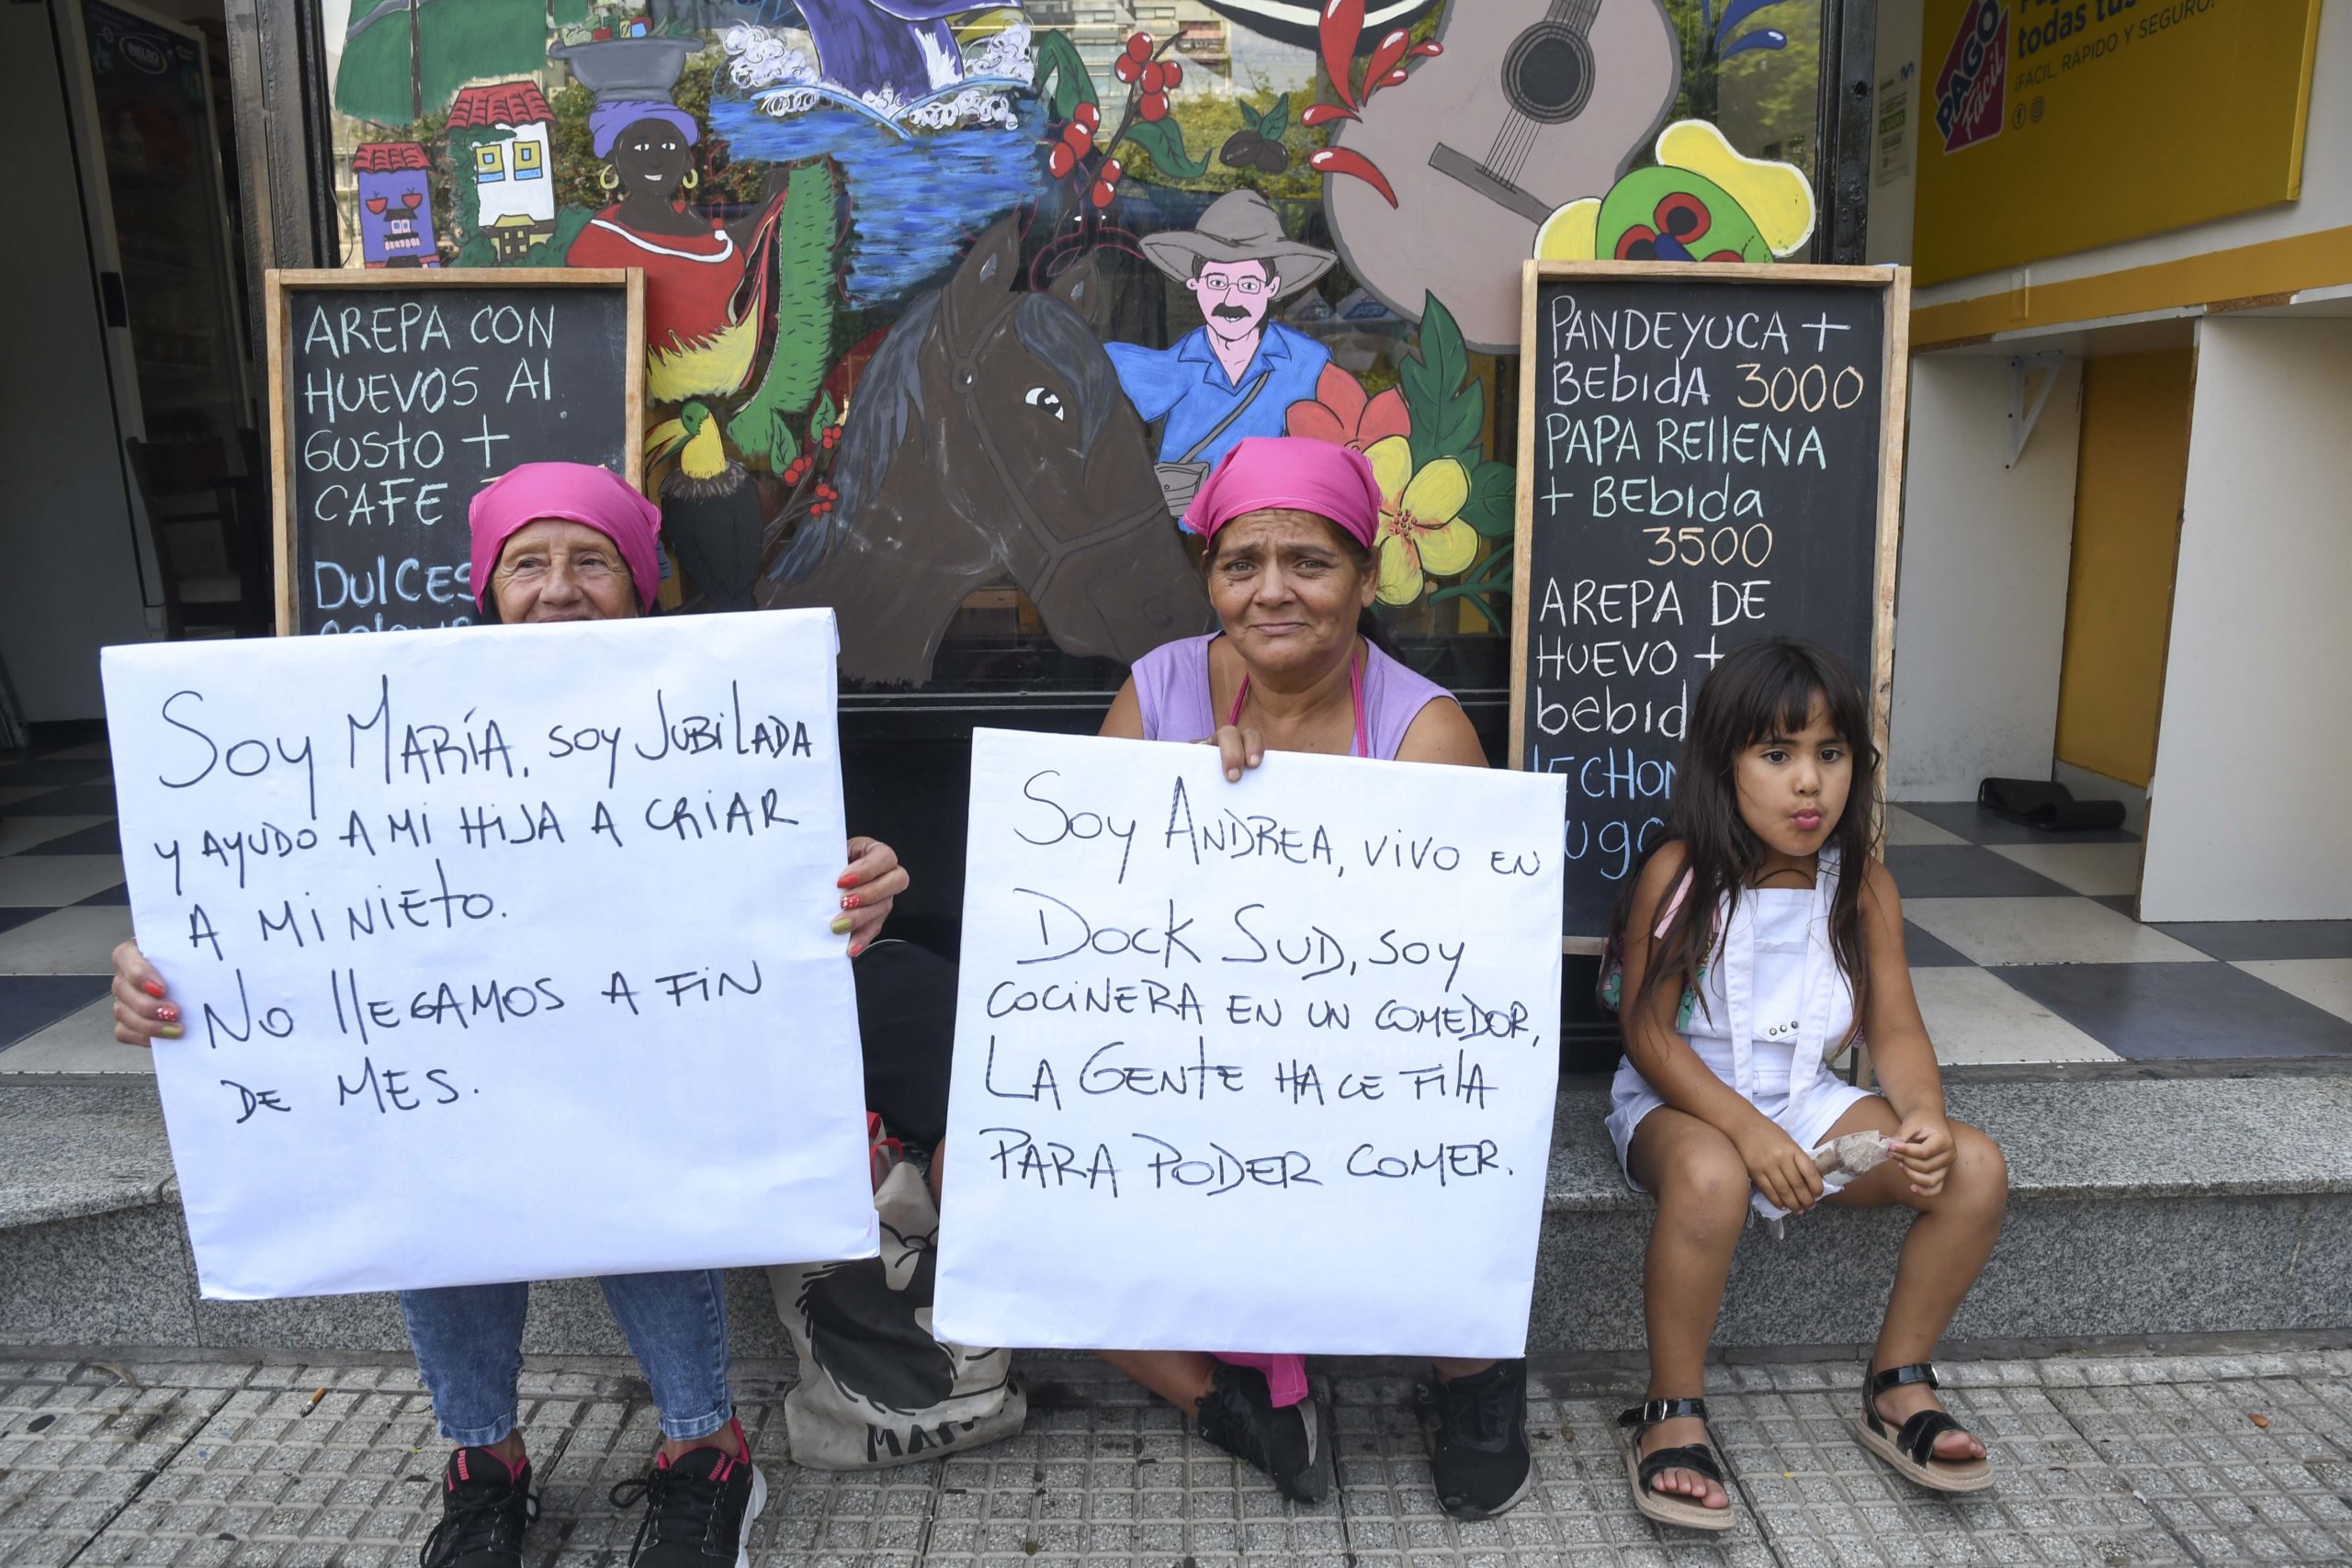 AREPA CON
HUEVOS Al
GUSTO +
CAFE
DULCES
SOY MARÍA, SOY JUBILADA
Y AYUDO A MI HIJA A CRIAR
A MI NIETO.
NO llEGAMOS A FIN
DE MES.
SOY ANDREA, VIVO EN
DOCK SUD, SOY
COCINERA EN UN COMEDOR,
LA GENTE HACE FILA
PARA PODER COMER.
PANDEYUCA +
BEbidA 3000
PAPA REllENA
+ BEbida
3500
AREPA DE
HUEVO +
bebid
lECHON
PAGO
Fácil
todas tus
¡FÁCIL, RÁPIDO Y SEGURO!